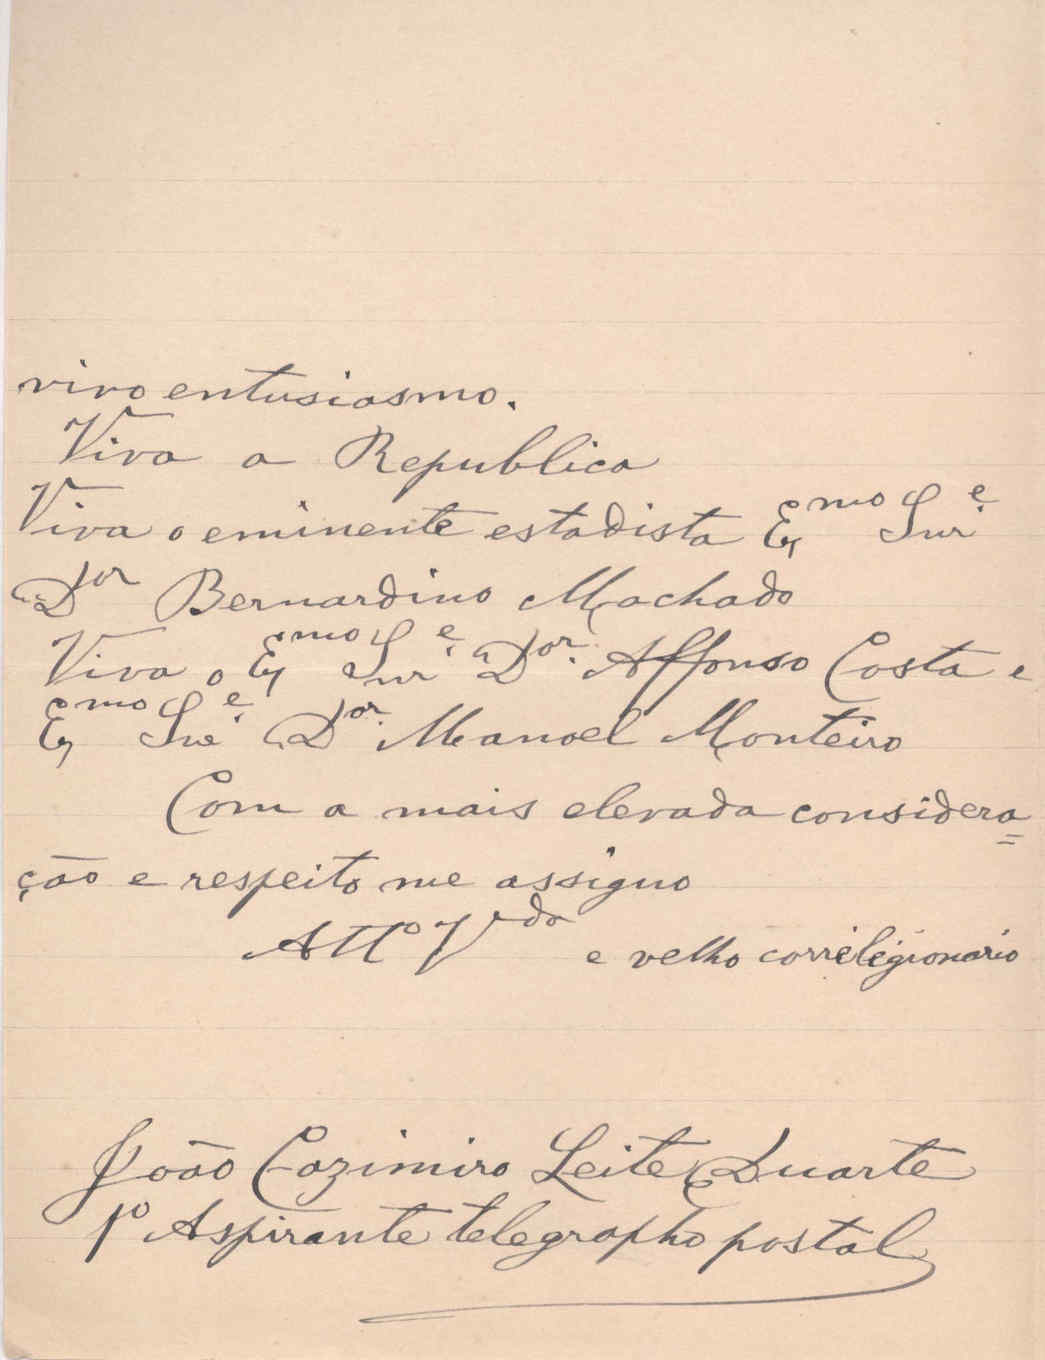 vivo entusiasmo.
Viva a Republica
Viva o eminente estadista Exmo Snr
Dor Bernardino Machado
Viva o Exmo Snr Dor. Affonso Costa e
Exmo Snr Dor. Manoel Monteiro
Com a mais elevada considera=
ção e respeito me assigno
Atto Vdo e velho correlégionário
João Cazimiro Leite Duarte
1º Aspirante telegrapho postal